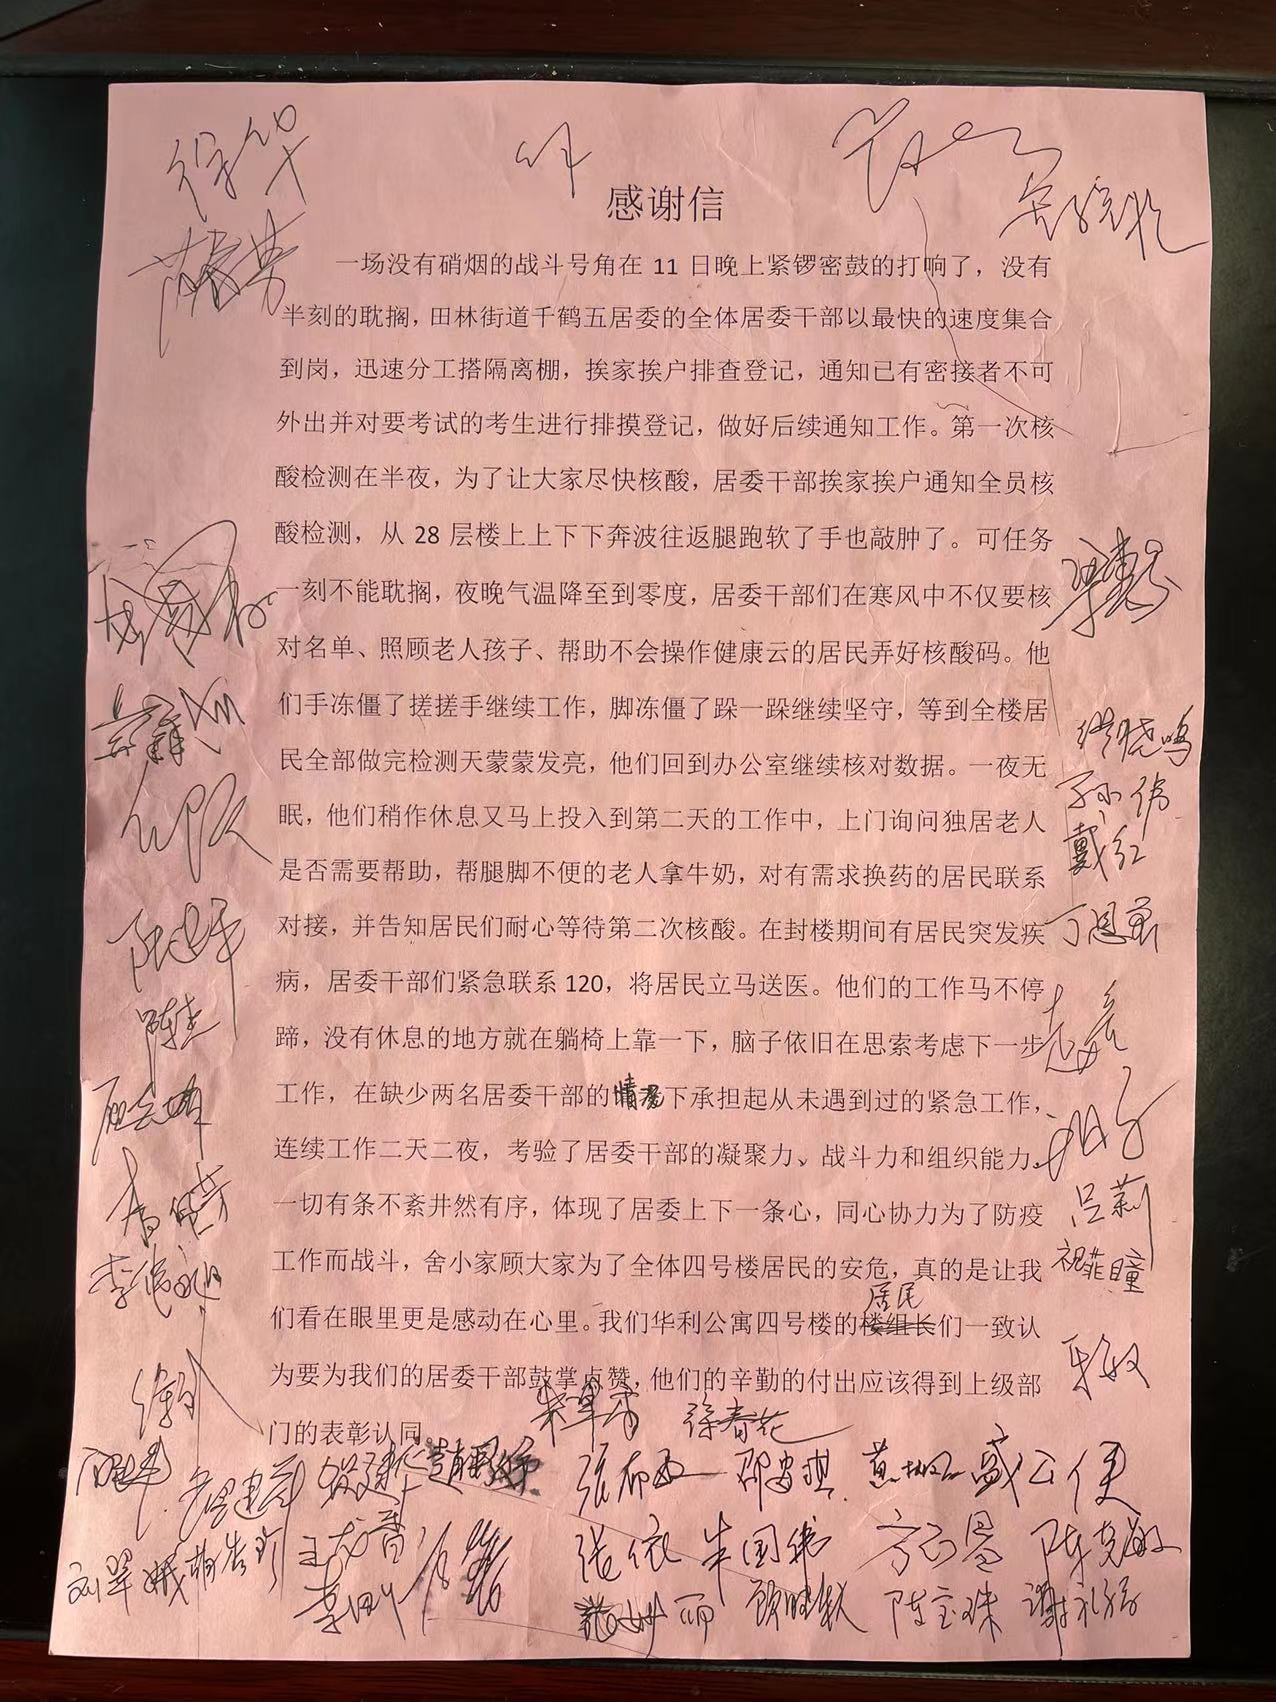 徐华
感谢信
一场没有硝烟的战斗号角在 11 日晚上紧锣密鼓的打响了，没有
半刻的耽搁，田林街道千鹤五居委的全体居委干部以最快的速度集合
到岗，迅速分工搭隔离棚，挨家挨户排查登记，通知已有密接者不可
外出并对要考试的考生进行排摸登记，做好后续通知工作。第一次核
酸检测在半夜，为了让大家尽快核酸，居委干部挨家挨户通知全员核
酸检测，从 28 层楼上上下下奔波往返腿跑软了手也敲肿了。可任务
一刻不能耽搁，夜晚气温降至到零度，居委干部们在寒风中不仅要核
对名单、照顾老人孩子、帮助不会操作健康云的居民弄好核酸码。他
们手冻僵了搓搓手继续工作，脚冻僵了跺一跺继续坚守，等到全楼居
民全部做完检测天蒙蒙发亮，他们回到办公室继续核对数据。一夜无
眠，他们稍作休息又马上投入到第二天的工作中，上门询问独居老人
是否需要帮助，帮腿脚不便的老人拿牛奶，对有需求换药的居民联系
对接，并告知居民们耐心等待第二次核酸。在封楼期间有居民突发疾
病，居委干部们紧急联系 120，将居民立马送医。他们的工作马不停
蹄，没有休息的地方就在躺椅上靠一下，脑子依旧在思索考虑下一步
工作，在缺少两名居委干部的情况下承担起从未遇到过的紧急工作，
连续工作二天二夜，考验了居委干部的凝聚力、战斗力和组织能力。
一切有条不紊井然有序，体现了居委上下一条心，同心协力为了防疫
工作而战斗，舍小家顾大家为了全体四号楼居民的安危，真的是让我
居民
们看在眼里更是感动在心里。我们华利公寓四号楼的楼组长们一致认
为要为我们的居委干部鼓掌点赞，他们的辛勤的付出应该得到上级部
门的表彰认同。
洪晓鸣
孙伟
戴红
吕莉
祝菲瞳
朱敏
陈杰
徐春花
盛公便
张依 朱国伟 陈克敏
刘翠娥 李刚 陈宝珠